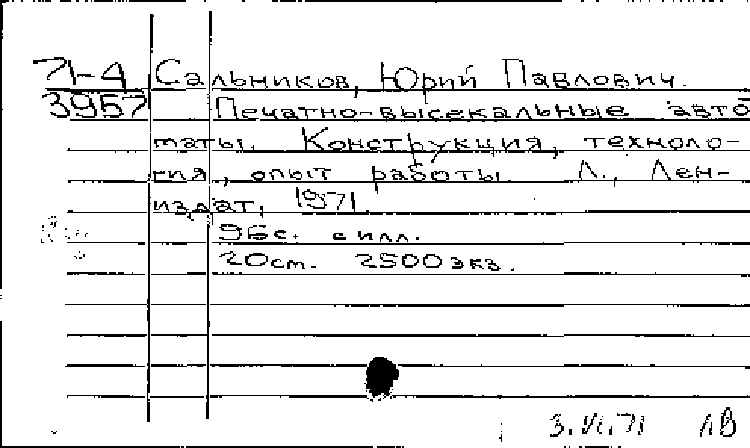 71-4 Сальников, Юрий Павлович.
3957 Печатно-высекальные авто
маты. Конструкция, техноло-
гия, опыт работы. Л., Лен-
издат, 1971
96с. с илл.
20см. 2500 экз.
3.VI.71 ЛВ